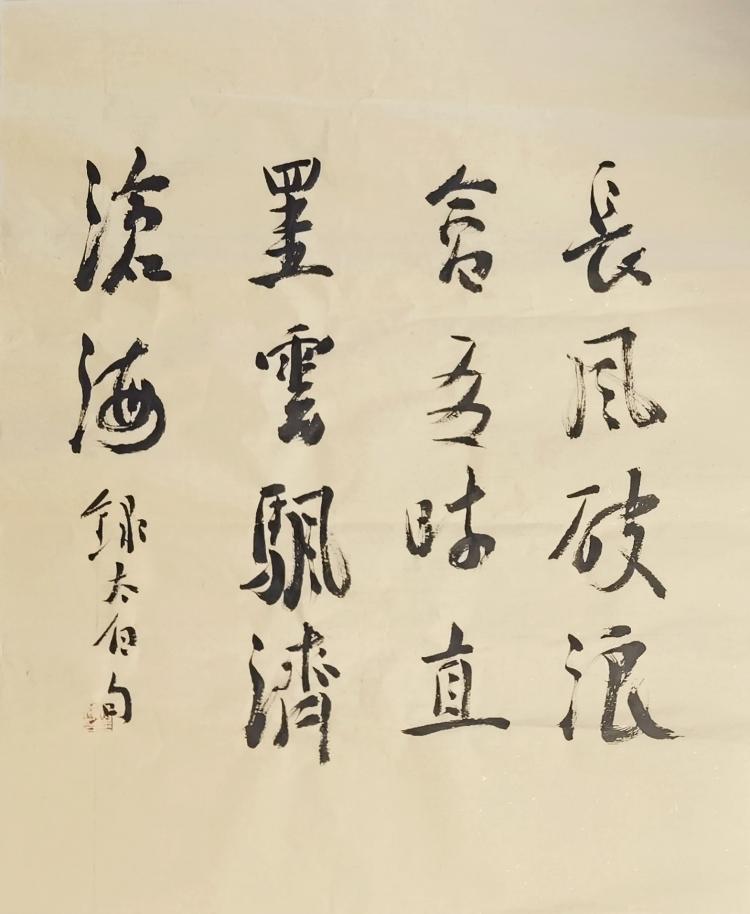 長風破浪
會有時直
罣雲颿濟
滄海錄太白句